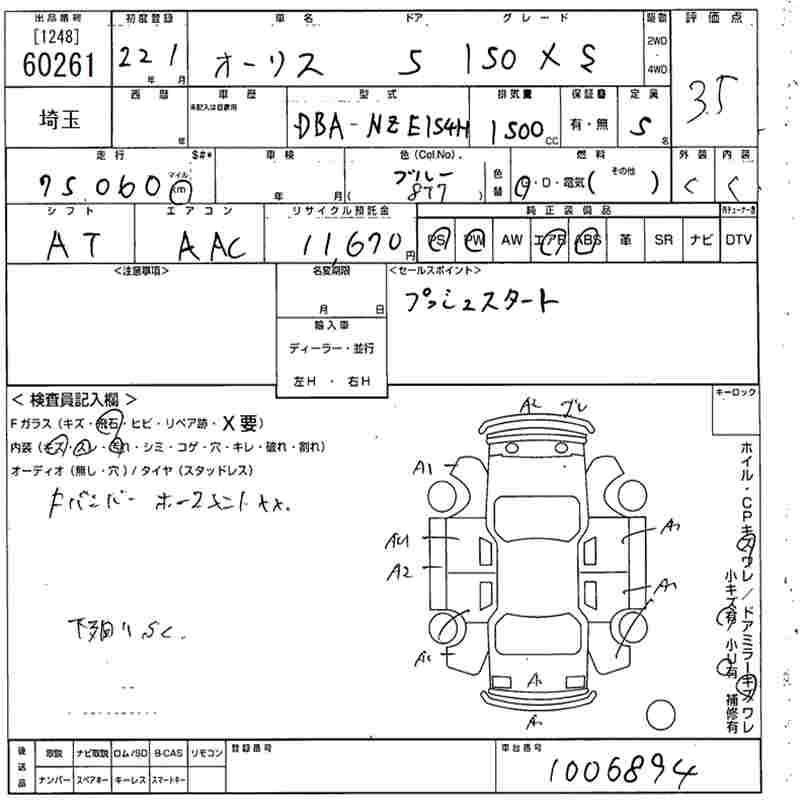 出品番号 初度登録 車名 ドア グレード 駆動 評価点
[1248]
60261 22 1 オーリス 5 150 X S 2WD・4WD 3.5
年 月
埼玉 西暦 車歴 型式 排気量 保証書 定員
未記入は自家用
年 DBA-NZE154H 1500 CC 有・無 5 名
走行 $#* 車検 色(Col.No). 燃料 外装 内装
75,060 マイル km 年 月 ( ブルー 8T7 ) 色替 G・D・電気( その他 ) C C
シフト エアコン リサイクル預託金 純正装備品
AT AAC 11,670 円 PS PW AW エアB ABS 革 SR ナビ DTV
<注意事項> 名変期限 <セールスポイント>
月 日 プッシュスタート
輸入車
ディーラー・並行
左H・右H
<検査員記入欄> キーロック
Fガラス(キズ・飛石・ヒビ・リペア跡・X要)
内装(キズ・スレ・汚れ・シミ・コゲ・穴・キレ・破れ・割れ)
オーディオ(無し・穴)/タイヤ(スタッドレス)
バンパー ホースメントXX.
下回り SC.
A2
A1
A2
ホイル・CPキズワレ/ドアミラーキズワレ
小キズ有/小U有 補修有
後送品 取説 ナビ取説 ロム/SD B-CAS リモコン 登録番号 車台番号
ナンバー スペアキー キーレス スマートキー 1006894